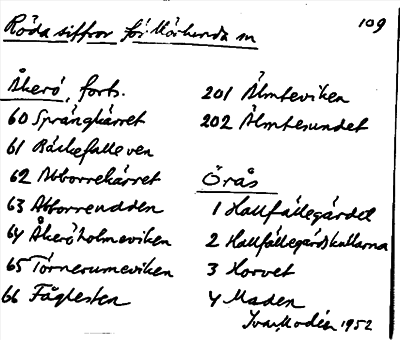 109
Röda siffror för Mörkerda sn
Åkerö, forts.
60 Sprängkärret
61 Räckefalleven
62 Abborrekärret
63 Abborreudden
64 Åkeröholmeviken
65 Törnerumeviken
66 Fåglesten
201 Älmteviken
202 Älmtesundet
Örås
1 Hallfällegärdet
2 Hallfällegärdskullarna
3 Horvet
4 Maden
Ivar Modéer 1952